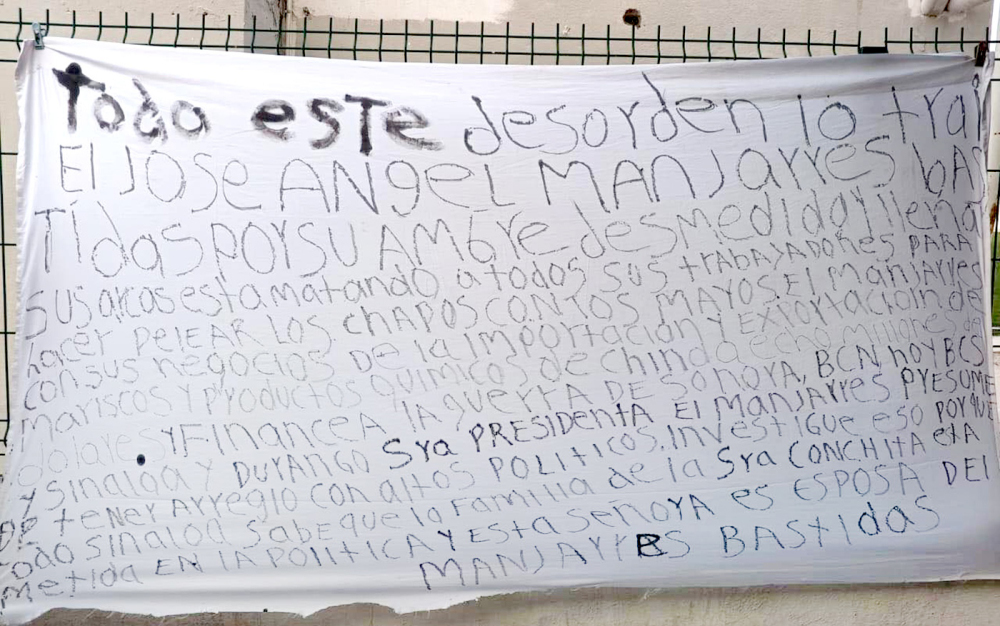 Todo este desorden lo trai
El JOSE ANgel MANJarres bAS
Tidas por su AMbre desmedida y llenar
sus arcas esta matando a todos sus trabajadores PARA
hacer PELEAR LOS chapos con los MAYOS. El Manjarres
con sus negocios DE la importación y Exportacioin de
mariscos y productos quimicos de china a echo millones de
dolares y Financea lA guerra DE Sonora, BCN hoy BCS
y Sinaloa y DURANGO Sra PRESIDENTA El Manjarres PRESUME
DE tener Arreglo con altos POLITICOS. Investigue eso porque
todo Sinaloa Sabe que la Familia de la Sra CONCHITA etA
Metida EN lA POLITICA y Esta señora es ESPOSA DEl
MANJArrES BAStidas